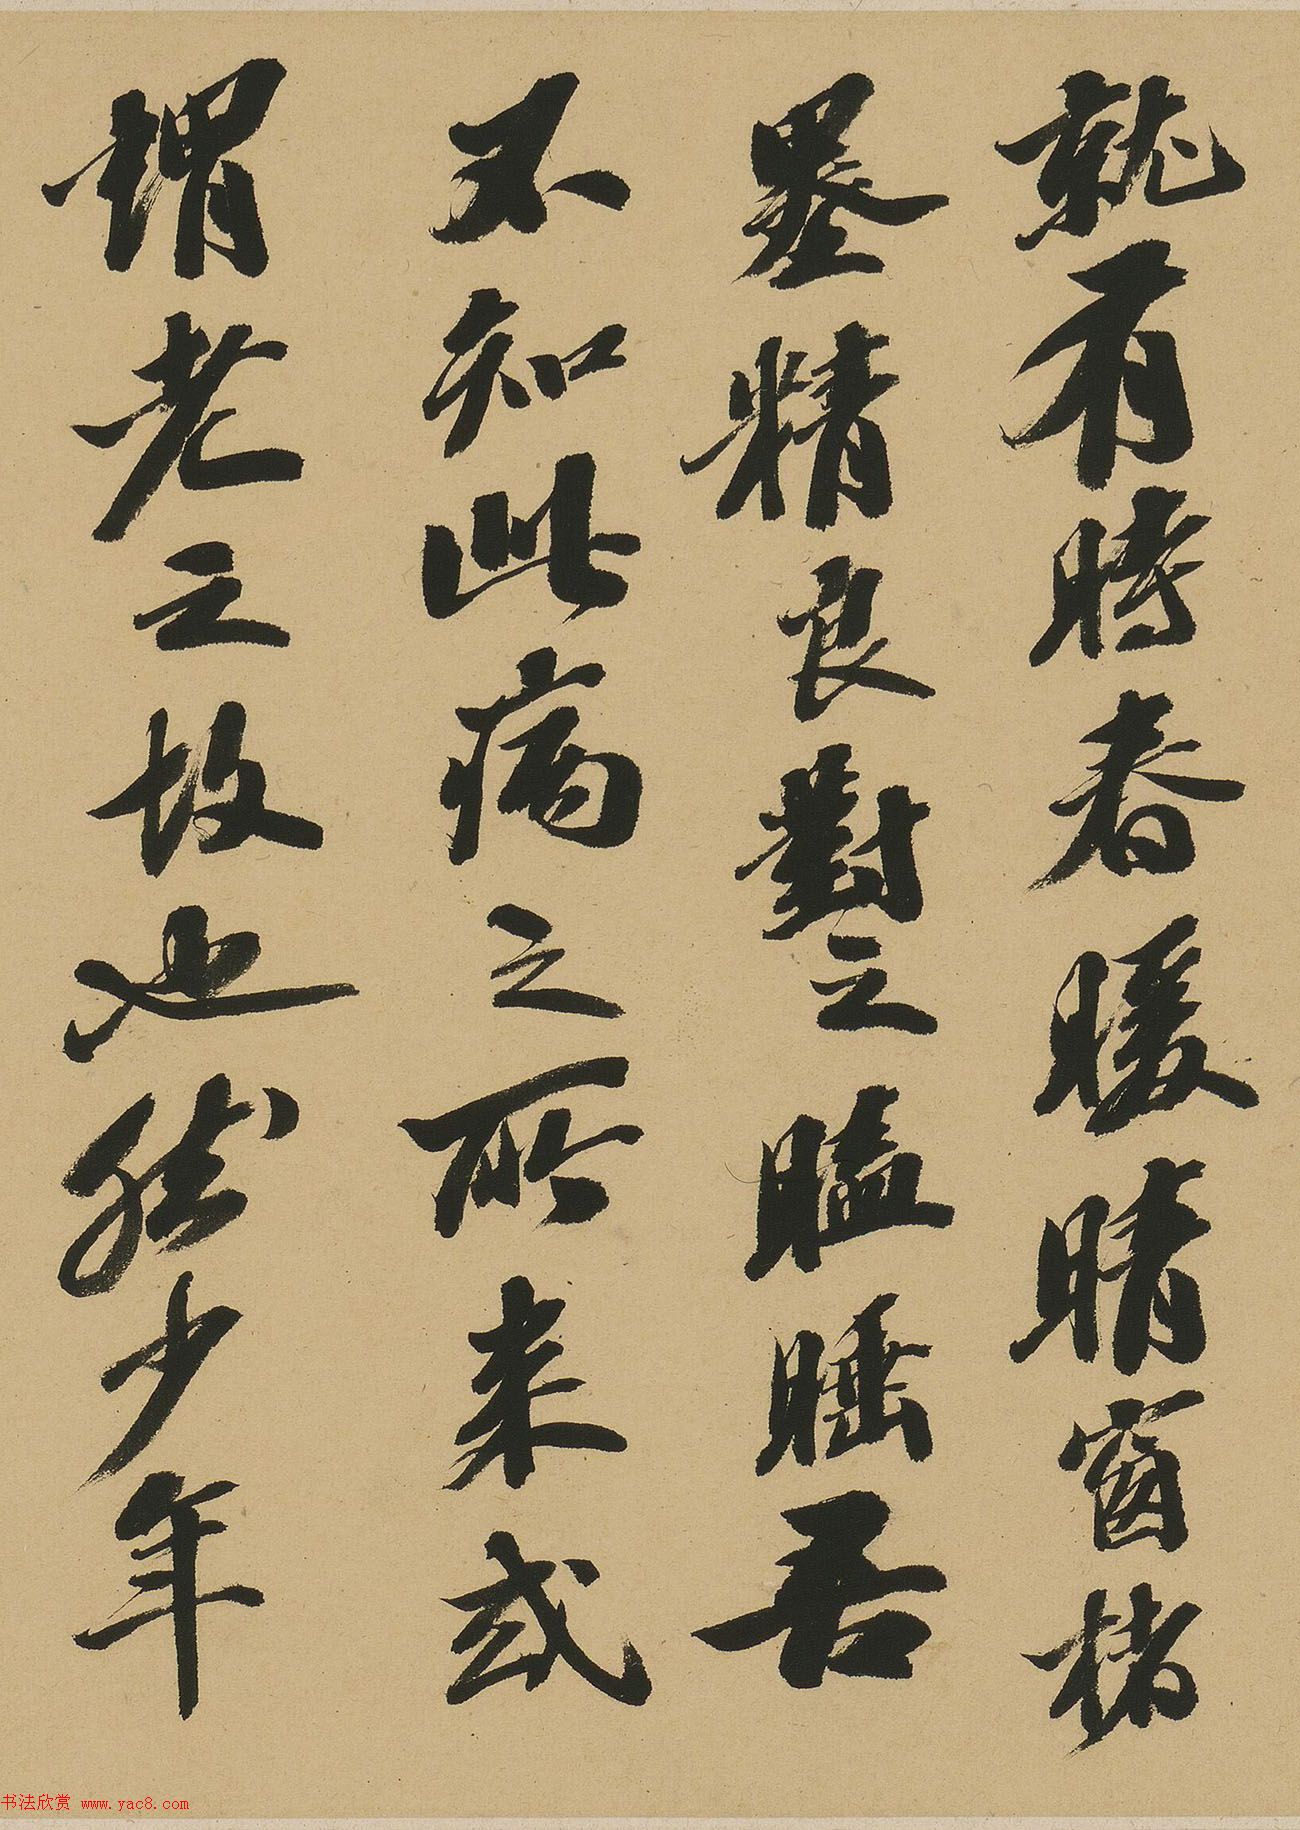 就有時春暖晴窗楮
墨精良對之瞌睡吾
不知此病之所来或
謂老之故也然少年
书法欣赏 www.yac8.com